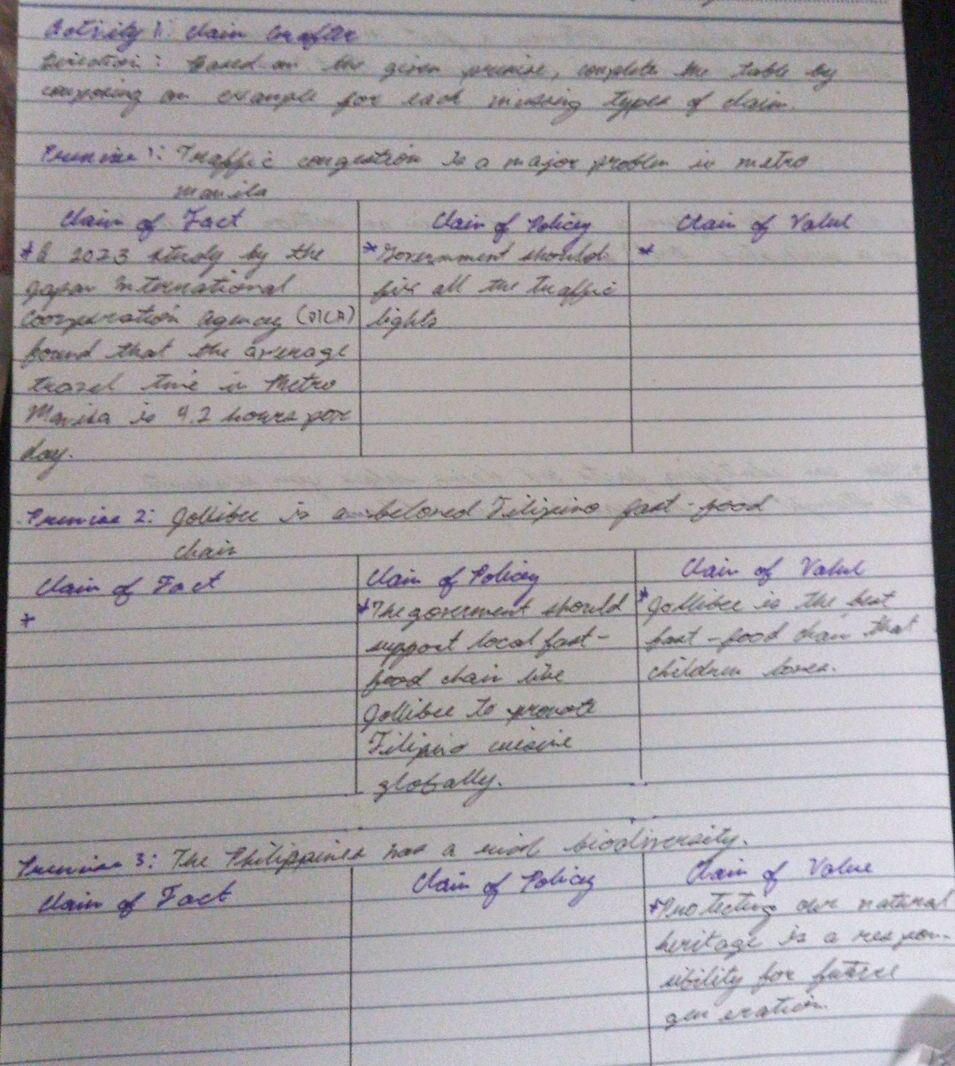 Activity 1: Claim Crafter
Direction: Based on the given premise, complete the table by
composing an example for each missing types of claim.
Premise 1: Traffic congestion is a major problem in metro
manila
Claim of Fact
* A 2023 study by the
Japan International
Cooperation agency (JICA)
found that the average
travel time in Metro
Manila is 4.2 hours per
day.
Claim of Policy
* Government should
fix all the traffic
lights
Claim of Value
*
Premise 2: Jollibee is a beloved Filipino fast-food
chain
Claim of Fact
*
Claim of Policy
* The goverment should
support local fast-
food chain like
Jollibee to promote
Filipino cuisine
globally.
Claim of Value
* Jollibee is the best
fast-food chain that
children loves.
Premise 3: The Philippines has a rich biodiversity.
Claim of Fact
Claim of Policy
Claim of Value
* Protecting our natural
heritage is a respon-
sibility for future
generation.